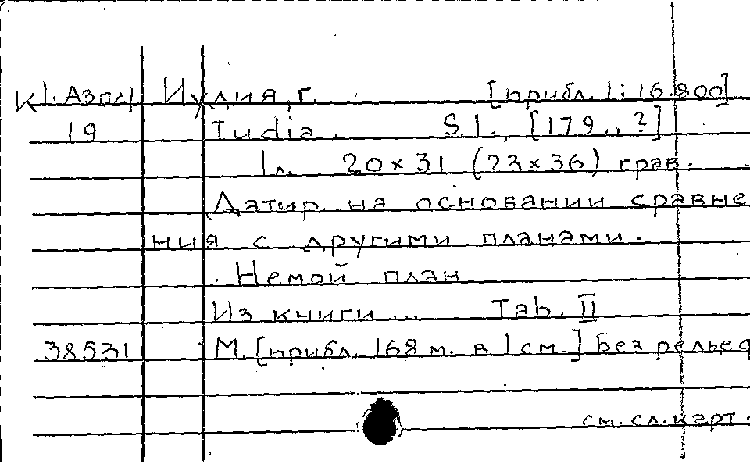 К1. Азол Иудия, г. [прибл. 1:16.800]
19 Iudia. S.l., [179..?]
1 л. 20×31 (23×36) грав.
Датир. на основании сравне
ния с другими планами.
Немой план
Из книги ... Tab. II
38531 М. [прибл. 168 м. в 1 см.] без рельеф
см. сл. карт.